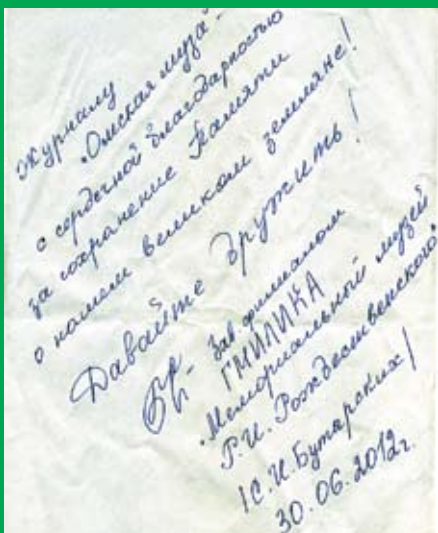 Журналу
"Омская муза"
с сердечной благодарностью
за сохранение Памяти
о нашем великом земляке!
Давайте дружить!
Зав филиалом
ГМИЛИКА
"Мемориальный музей
Р.И. Рождественского"
/С.И. Бутарских/
30.06.2012г.